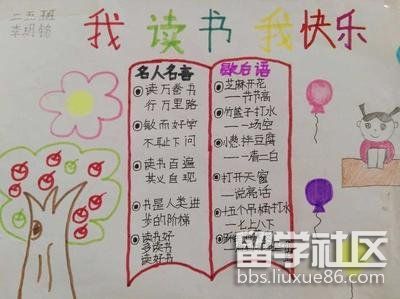 二五班
李玥铭
我读书 我快乐
名人名言
读万卷书
行万里路
敏而好学
不耻下问
读书百遍
其义自现
书是人类进
步的阶梯
读书好
多读书
读好书
歇后语
芝麻开花
——节节高
竹篮子打水
——一场空
小葱拌豆腐
——一清二白
打开天窗
——说亮话
十五个吊桶打水
——七上八下
留学社区
bbs.liuxue86.com